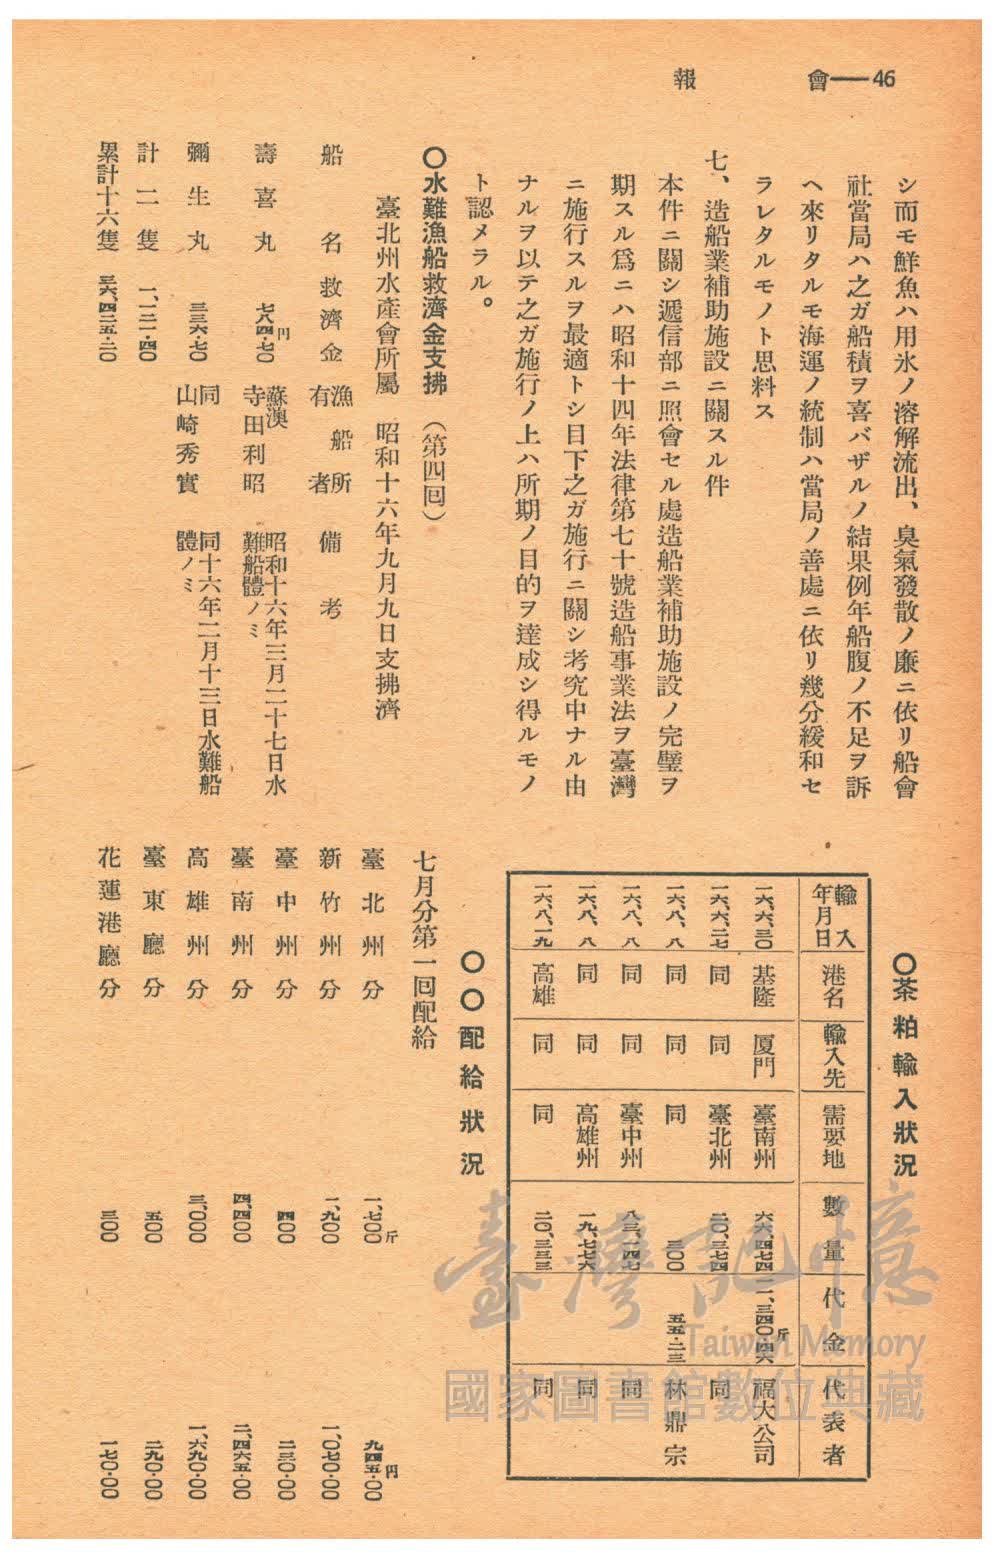 46——會報
シ而モ鮮魚ハ用氷ノ溶解流出、臭氣發散ノ廉ニ依リ船會
社當局ハ之ガ船積ヲ喜バザルノ結果例年船腹ノ不足ヲ訴
ヘ來リタルモ海運ノ統制ハ當局ノ善處ニ依リ幾分緩和セ
ラレタルモノト思料ス
七、造船業補助施設ニ關スル件
本件ニ關シ遞信部ニ照會セル處造船業補助施設ノ完璧ヲ
期スル爲ニハ昭和十四年法律第七十號造船事業法ヲ臺灣
ニ施行スルヲ最適トシ目下之ガ施行ニ關シ考究中ナル由
ナルヲ以テ之ガ施行ノ上ハ所期ノ目的ヲ達成シ得ルモノ
ト認メラル。
〇水難漁船救濟金支拂(第四回)
臺北州水產會所屬 昭和十六年九月九日支拂濟
船名 救濟金 漁船所有者 備考
壽喜丸 七八四・七〇円 蘇澳 寺田利昭 昭和十六年三月二十七日水難船體ノミ
彌生丸 三三六・七〇 同 山崎秀實 同十六年二月十三日水難船體ノミ
計二隻 一、一二一・四〇
累計十六隻 三六、四二五・二〇
〇茶粕輸入狀況
輸入年月日 港名 輸入先 需要地 數量 代金 代表者
一六、六、三〇 基隆 厦門 臺南州 六六、四七四 一一、三四〇・四六 斤 福大公司
一六、六、二七 同 同 臺北州 二〇、三七四 同
一六、八、八 同 同 同 三〇〇 五五・二三 林鼎宗
一六、八、八 同 同 臺中州 八三、一四七 同
一六、八、八 同 同 高雄州 一九、七七六 同
一六、八、一九 高雄 同 同 二〇、三三三 同
〇〇配給狀況
七月分第一回配給
臺北州分 一、七〇〇斤 九四五・〇〇円
新竹州分 一、九〇〇 一、〇七〇・〇〇
臺中州分 四〇〇 二三〇・〇〇
臺南州分 四、四〇〇 二、四六五・〇〇
高雄州分 三、〇〇〇 一、六九〇・〇〇
臺東廳分 五〇〇 二九〇・〇〇
花蓮港廳分 三〇〇 一七〇・〇〇
臺灣記憶
Taiwan Memory
國家圖書館數位典藏